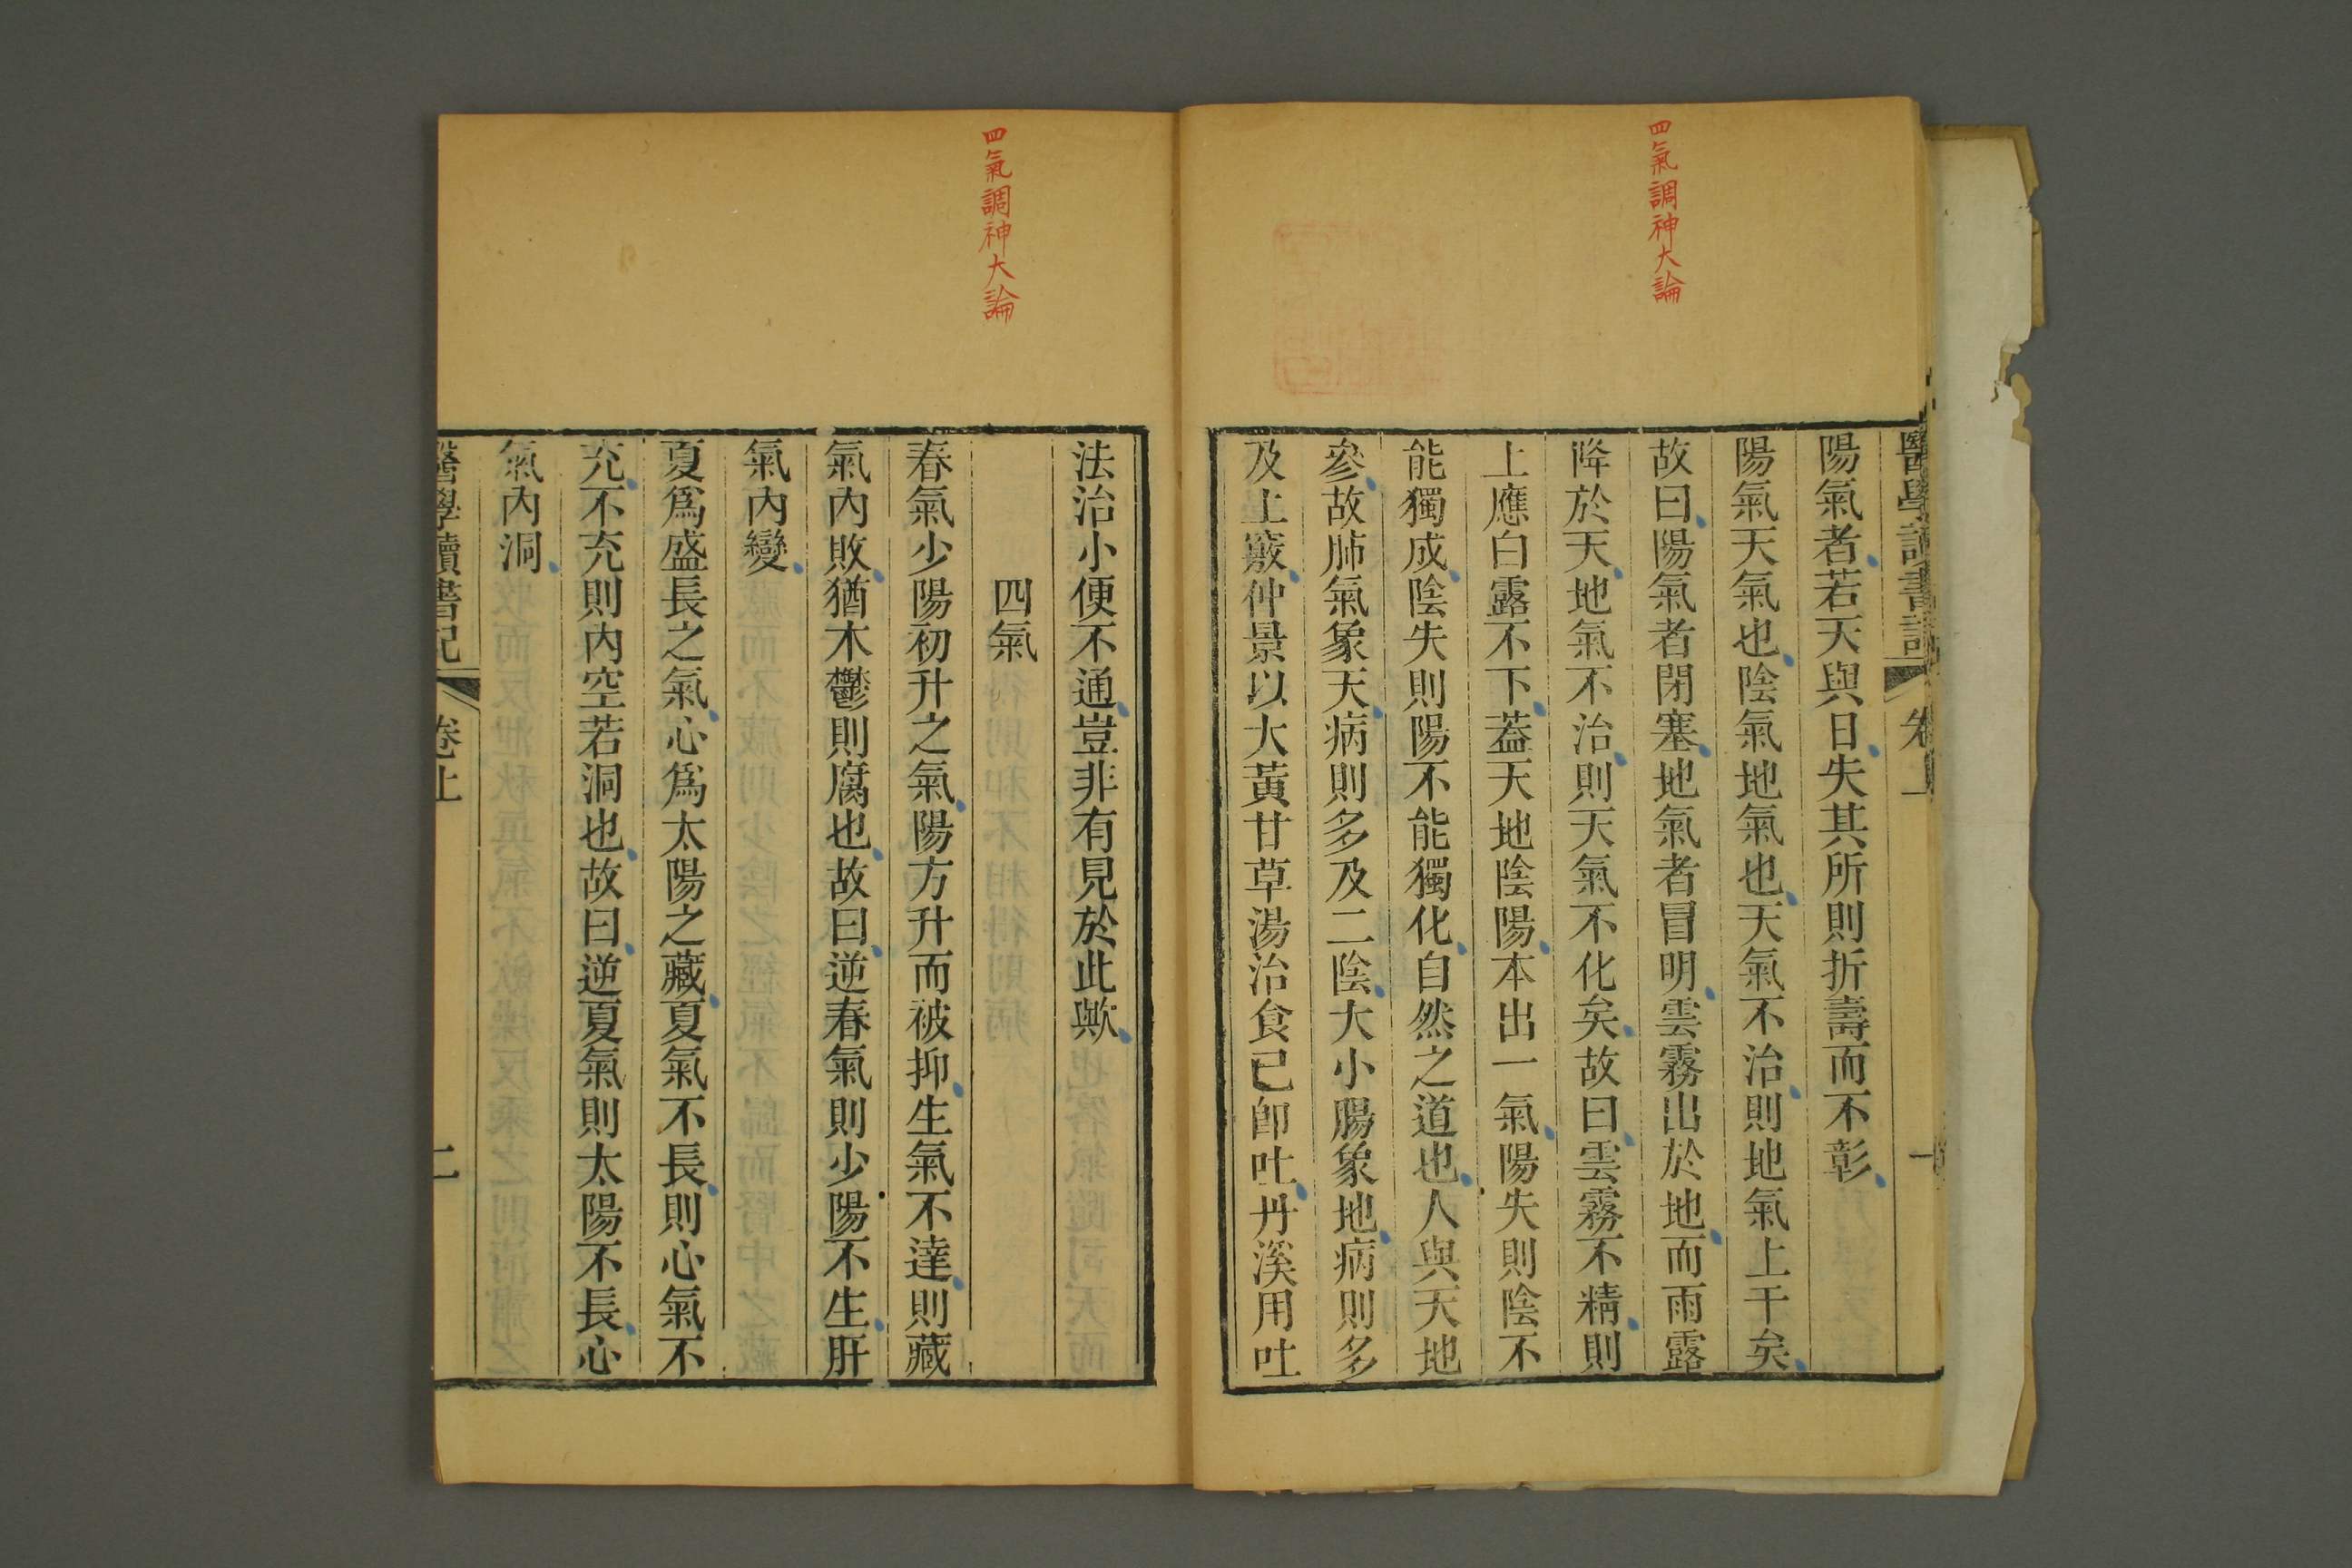 四氣調神大論
醫學讀書記 卷上 一
陽氣者若天與日失其所則折壽而不彰
陽氣天氣也陰氣地氣也天氣不治則地氣上干矣
故曰陽氣者閉塞地氣者冒明雲霧出於地而雨露
降於天地氣不治則天氣不化矣故曰雲霧不精則
上應白露不下蓋天地陰陽本出一氣陽失則陰不
能獨成陰失則陽不能獨化自然之道也人與天地
參故肺氣象天病則多及二陰大小腸象地病則多
及上竅仲景以大黃甘草湯治食已卽吐丹溪用吐
四氣調神大論
法治小便不通豈非有見於此歟
四氣
春氣少陽初升之氣陽方升而被抑生氣不達則藏
氣內敗猶木鬱則腐也故曰逆春氣則少陽不生肝
氣內變
夏爲盛長之氣心爲太陽之藏夏氣不長則心氣不
充不充則內空若洞也故曰逆夏氣則太陽不長心
氣內洞
醫學讀書記 卷上 二